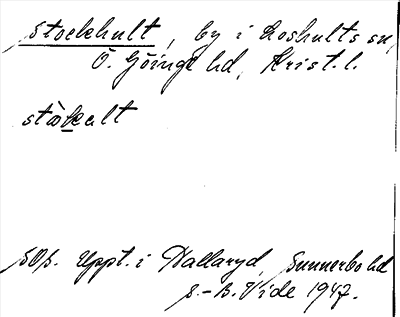 Stockhult, by i Loshults sn,
Ö. Göinge hd, Krist. l.
ståkalt
SOS. Uppt. i Hallaryd, Sunnerbo hd
S.-B. Vide 1947.